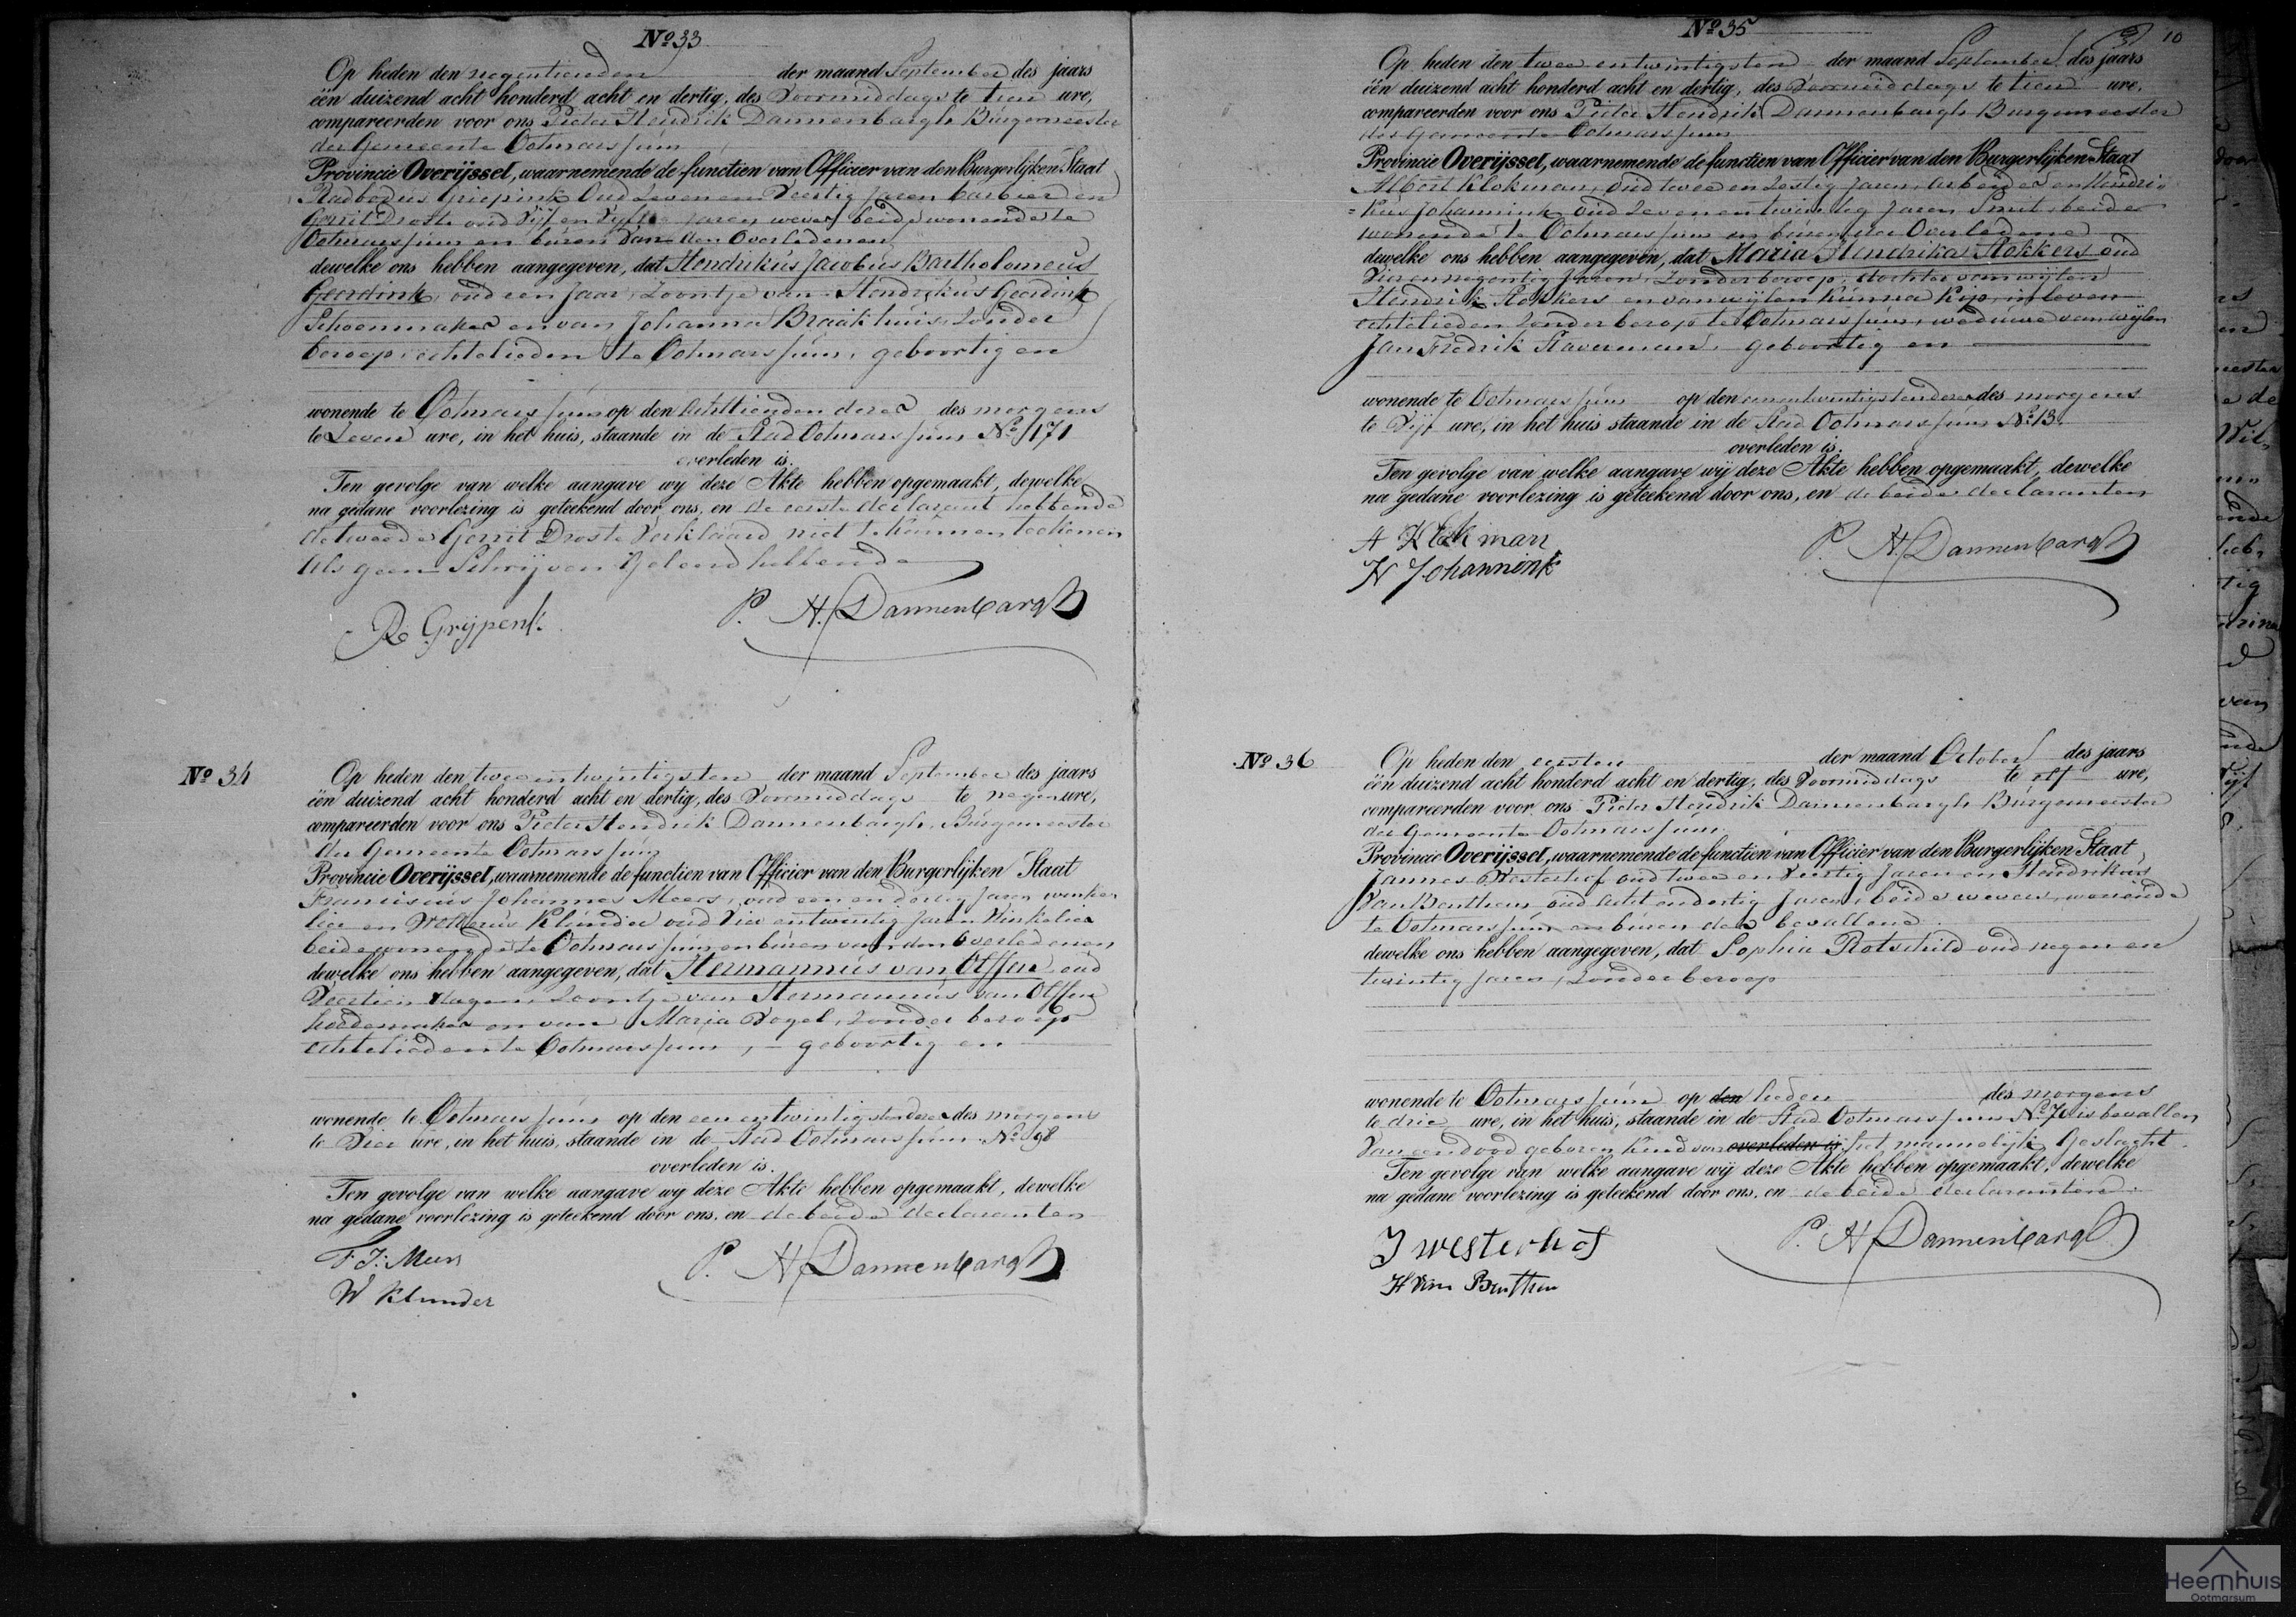 No 33
Op heden den negentienden der maand September des jaars
één duizend acht honderd acht en dertig, des Voormiddags te tien ure,
compareerden voor ons Pieter Hendrik Dannenbargh Burgemeester
der Gemeente Ootmarssum
Provincie Overijssel, waarnemende de functien van Officier van den Burgerlijken Staat
Radbodus Griepink Oud Zeven en Veertig Jaren barbier en
Gerrit Droste oud Vijf en Vyftig jaren wever beide wonende te
Ootmarssum en buren van den Overledenen
dewelke ons hebben aangegeven, dat Hendrikus Jacobus Bartholomeus
Geerdink, oud een Jaar, Zoontje van Hendrikus Geerdink
Schoenmaker en van Johanna Braakhuis, Zonder
beroep, echtelieden te Ootmarssum, geboortig en
wonende te Ootmarssum op den achttienden dezer des morgens
te Zeven ure, in het huis, staande in de Stad Ootmarssum No 171
overleden is.
Ten gevolge van welke aangave wy deze Akte hebben opgemaakt, dewelke
na gedane voorlezing is geteekend door ons, en de eerste declarant hebbende
de tweede Gerrit Droste Verklaard niet te kunnen teekenen
als geen Schrijven Geleerd hebbende
R Grijpenk.
P. H. Dannenbargh
No 34
Op heden den twee en twintigsten der maand September des jaars
één duizend acht honderd acht en dertig, des Voormiddags te negen ure,
compareerden voor ons Pieter Hendrik Dannenbargh, Burgemeester
der Gemeente Ootmarssum
Provincie Overijssel, waarnemende de functien van Officier van den Burgerlijken Staat
Franciscus Johannes Meers, oud een en dertig Jaren winke
lier en Wolterus Klunder oud Vier en twintig Jaren Winkelier
beide wonende te Ootmarssum en buren van den Overledenen
dewelke ons hebben aangegeven, dat Hermannus van Olffen oud
Veertien dagen Zoontje van Hermannus van Olffen
hoedemaker en van Maria Vogel, Zonder beroep
echtelieden te Ootmarssum, geboortig en
wonende te Ootmarssum op den een en twintigsten dezer des morgens
te Vier ure, in het huis, staande in de Stad Ootmarssum No 198
overleden is.
Ten gevolge van welke aangave wy deze Akte hebben opgemaakt, dewelke
na gedane voorlezing is geteekend door ons, en de beide declaranten
F. J. Meers
W Klunder
P. H Dannenbargh
10
No 35
Op heden den twee en twintigsten der maand September des jaars
één duizend acht honderd acht en dertig, des Voormiddags te tien ure,
compareerden voor ons Pieter Hendrik Dannenbargh Burgemeester
der Gemeente Ootmarssum
Provincie Overijssel, waarnemende de functien van Officier van den Burgerlijken Staat
Albert Klokman, oud twee en Zestig Jaren, arbeider en Hendri-
=kus Johannink oud Zeven en twintig Jaren Smit, beide
wonende te Ootmarssum en buren der Overledene
dewelke ons hebben aangegeven, dat Maria Hendrika Stokkers oud
Vier en negentig Jaren, Zonder beroep, dochter van wijlen
Hendrik Stokkers en van wijlen Kunna Kip, in leven
echtelieden Zonder beroep te Ootmarssum, weduwe van wijlen
Jan Fredrik Staverman, geboortig en
wonende te Ootmarssum op den een en twintigsten dezer des morgens
te Vijf ure, in het huis staande in de Stad Ootmarssum No 13.
overleden is.
Ten gevolge van welke aangave wij deze Akte hebben opgemaakt, dewelke
na gedane voorlezing is geteekend door ons, en de beide declaranten
A Klokman
H Johannink
P. H. Dannenbargh
No 36
Op heden den eersten der maand October des jaars
één duizend acht honderd acht en dertig, des Voormiddags te elf ure,
compareerden voor ons Pieter Hendrik Dannenbargh Burgemeester
der Gemeente Ootmarssum
Provincie Overijssel, waarnemende de functien van Officier van den Burgerlijken Staat
Jannes Westerhof oud twee en Veertig Jaren en Hendrikus
Van Benthem oud acht en dertig Jaren, beide wevers, wonende
te Ootmarssum en buren der bevallene
dewelke ons hebben aangegeven, dat Sophia Rotschild oud negen en
twintig Jaren, Zonder beroep
wonende te Ootmarssum op den heden des morgens
te drie ure, in het huis, staande in de Stad Ootmarssum No 76 is bevallen
Van een dood geboren Kind van overleden is het mannelijk Geslacht.
Ten gevolge van welke aangave wij deze Akte hebben opgemaakt, dewelke
na gedane voorlezing is geteekend door ons, en de beide declaranten.
J westerhof
H van Benthem
P. H Dannenbargh
Heemhuis
Ootmarsum